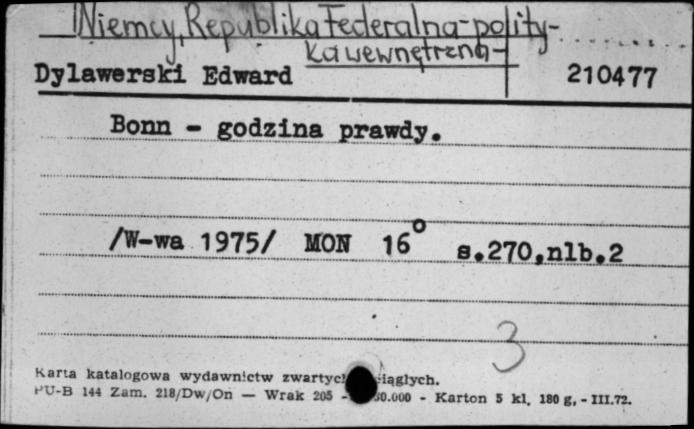 Niemcy, Republika Federalna-polity-
ka wewnętrzna-
Dylawerski Edward 210477
Bonn - godzina prawdy.
/W-wa 1975/ MON 16° s.270,nlb.2
3
Karta katalogowa wydawnictw
PU-B 144 Zam. 218/Dw/On — Wrak 205 - - Karton 5 kl. 180 g, - III.72.